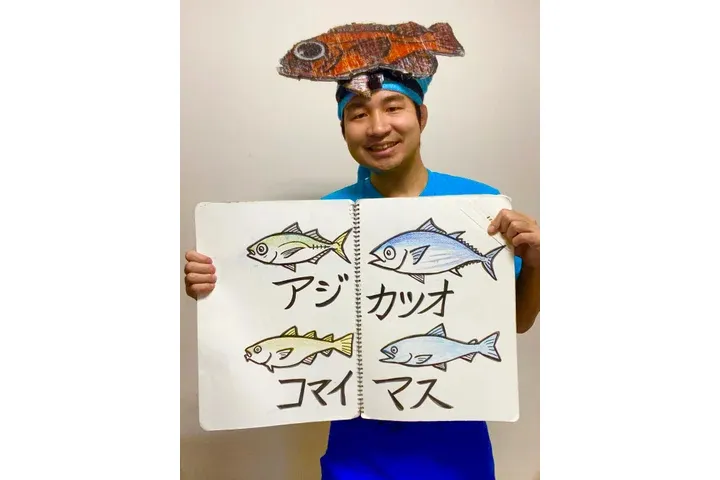 アジ
カツオ
コマイ
マス